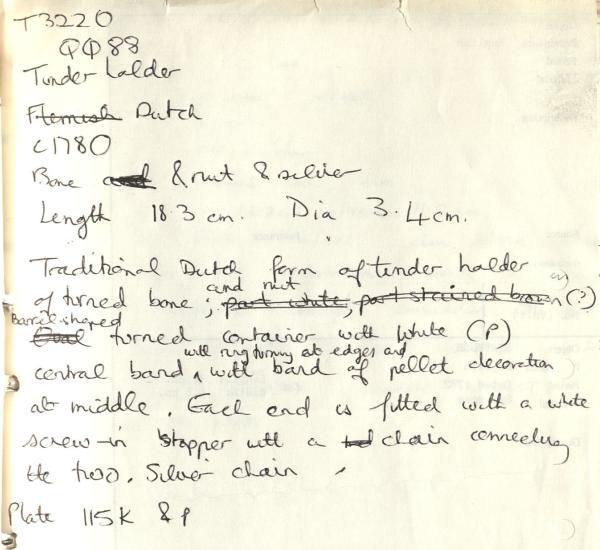 T3220
QQ88
Tinder holder
Flemish Dutch
c1780
Bone & nut & silver
Length 18.3 cm. Dia 3.4cm.
Traditional Dutch form of tinder holder
of turned bone and nut ; part white, part stained brown (?)
Barrel-shaped
Oval turned container with white (?)
central band, with ring turning at edges and with band of pellet decoration
at middle. Each end is fitted with a white
screw-in stopper with a chain connecting
the two. Silver chain
Plate 115K & P